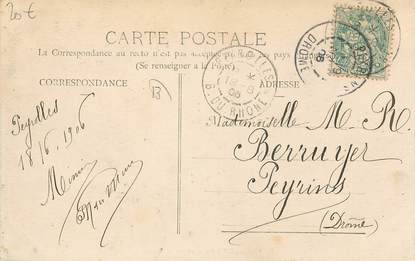 20€
CARTE POSTALE
La Correspondance au recto n'est pas acceptée par tous les pays
(Se renseigner à la Poste)
CORRESPONDANCE
ADRESSE
B
B. DU RHONE
DROME
Peyrolles
18/6/1906
Mademoiselle M. R.
Berruyer
Peyrins
(Drôme)